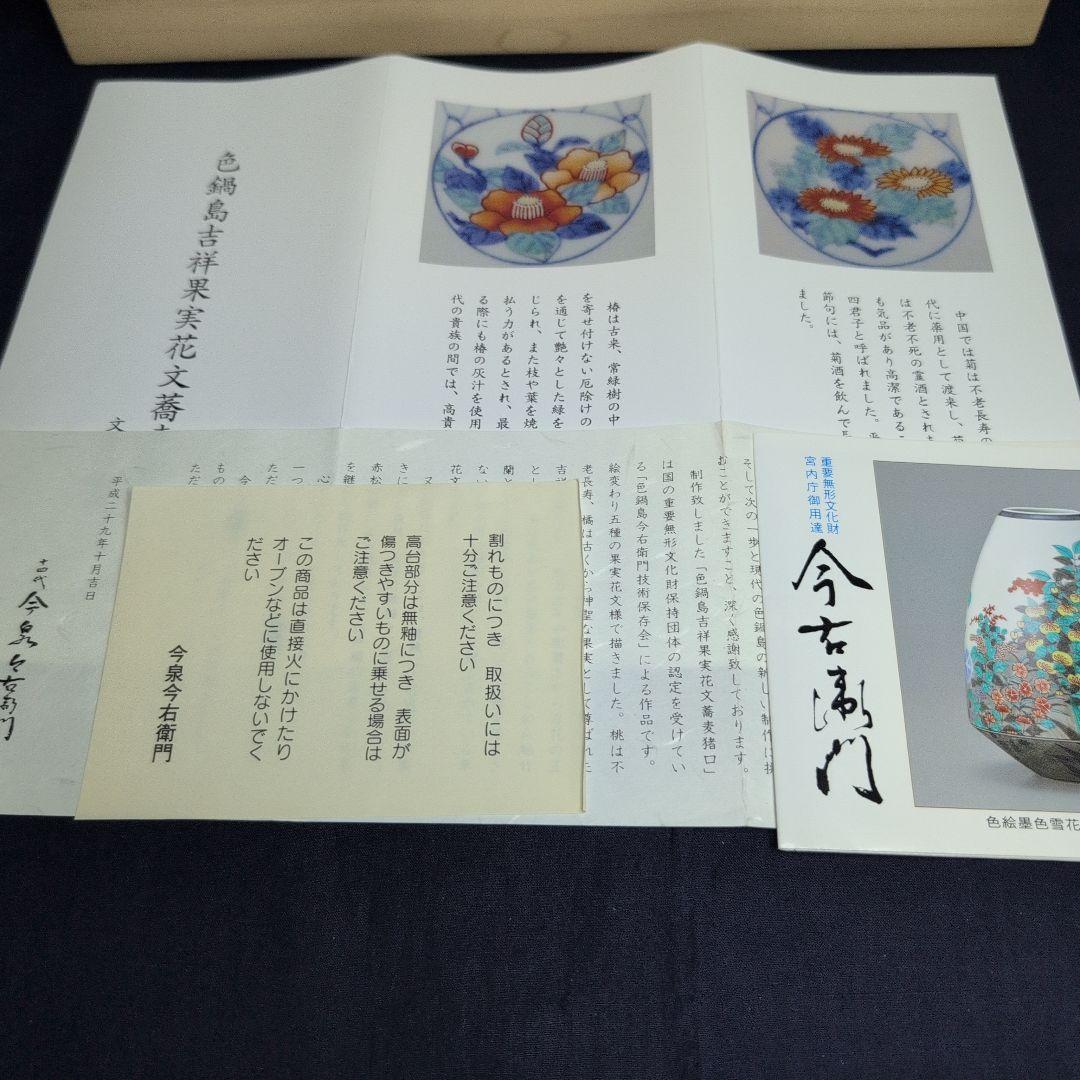 色鍋島吉祥果実花文蕎
文
椿は古来、常緑樹の中
を寄せ付けない厄除けの
を通じて艶々とした緑を
じられ、また枝や葉を焼
払う力があるとされ、最
る際にも椿の灰汁を使用
代の貴族の間では、高貴
中国では菊は不老長寿の
代に薬用として渡来し、菊
は不老不死の霊酒とされま
も気品があり高潔であるこ
四君子と呼ばれました。平
節句には、菊酒を飲んで長
ました。
そして次の一歩と現代の色鍋島の新しい制作に挑
むことができますこと、深く感謝致しております。
制作致しました「色鍋島吉祥果実花文蕎麦猪口」
は国の重要無形文化財保持団体の認定を受けてい
る「色鍋島今右衛門技術保存会」による作品です。
絵変わり五種の果実花文様で描きました。桃は不
老長寿、橘は古くから神聖な果実として尊ばれた
吉祥
として
蘭と
ない
花文
又
きに
赤松
を継
心
一つ
ただ
今
もの
ただ
平成二十九年十月吉日
十四代 今泉今右衛門
割れものにつき 取扱いには
十分ご注意ください
高台部分は無釉につき 表面が
傷つきやすいものに乗せる場合は
ご注意ください
この商品は直接火にかけたり
オーブンなどに使用しないでく
ださい
今泉今右衛門
重要無形文化財
宮内庁御用達
今右衛門
色絵墨色雪花